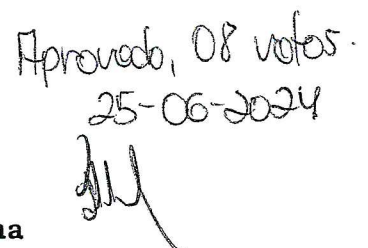 Aprovado, 08 votos.
25-06-2024
na